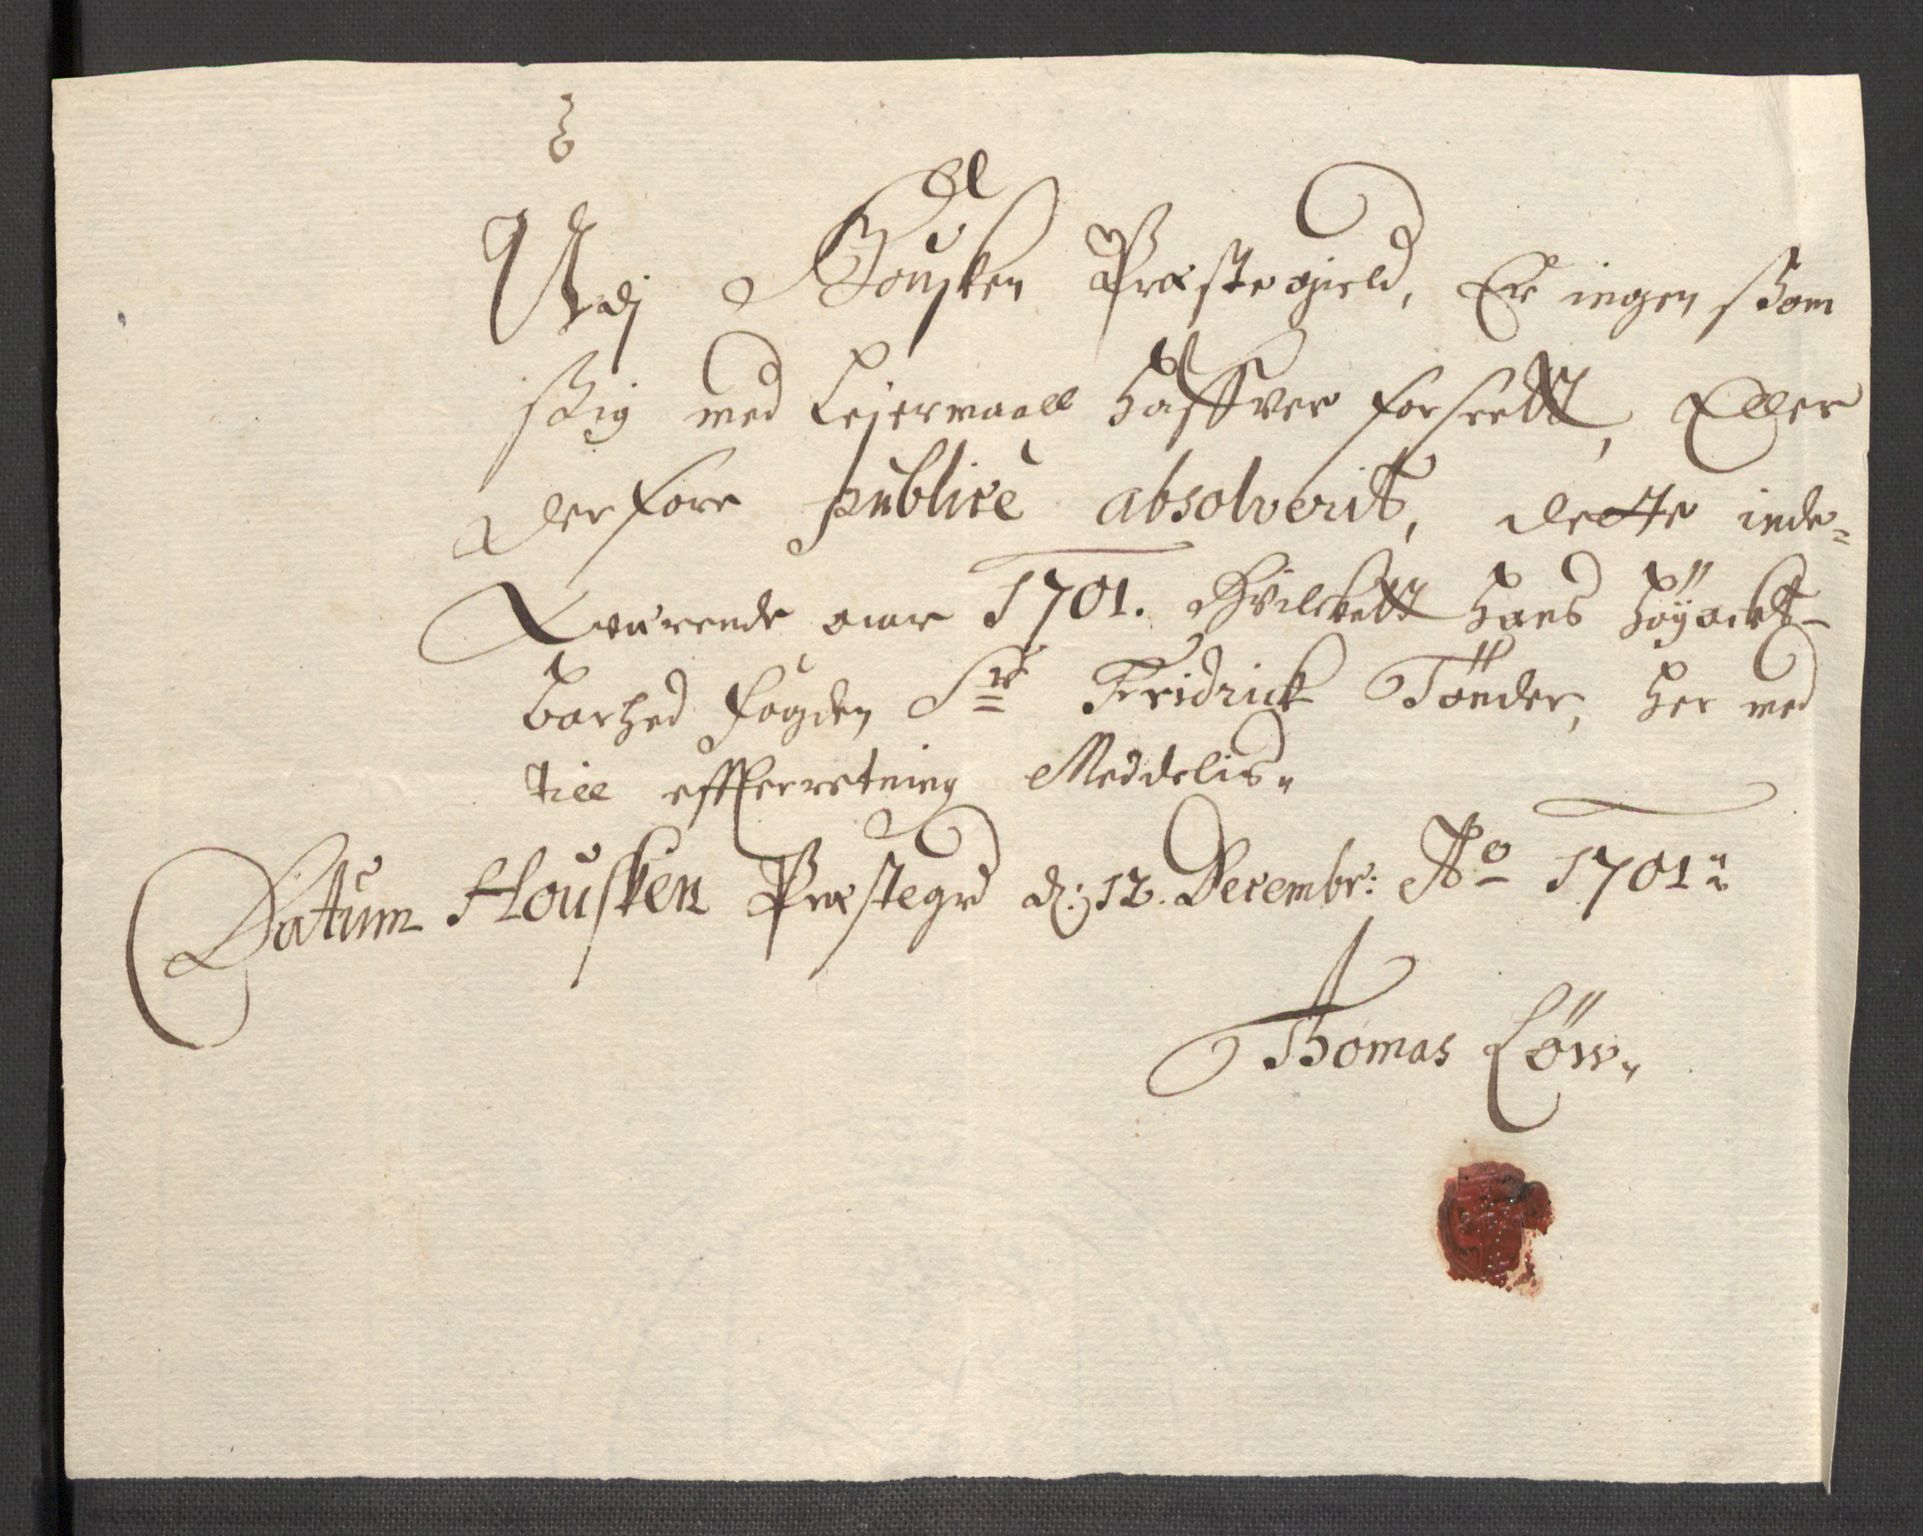 Udj Housken Præstegield, Er ingen ßom
ßig med Leiermaall haffver forseett, Eller
derfore publicè absolverit, dette inde-
værende aar 1701. Hvilckett hans Höyackt-
barhed fogden Sr Fridrick Tönder, her med
till effterretning Meddelis
Datum Housken Præstegrd d: 12. Decembr: Ao 1701
Thomas Löw